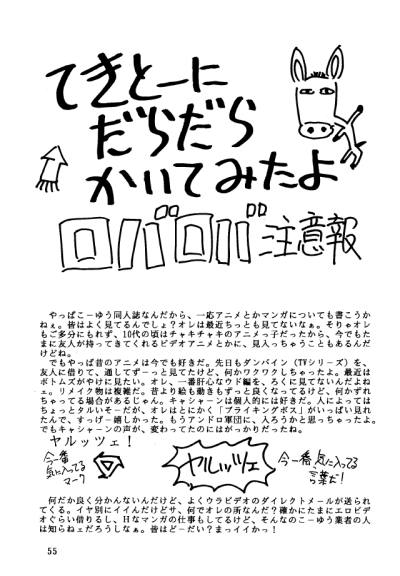 てきとーに
だらだら
かいてみたよ
ロバロバ注意報
やっぱこーゆう同人誌なんだから、一応アニメとかマンガについても書こうか
ねぇ。皆はよく見てるんでしょ？オレは最近ちっとも見てないなぁ。そりゃオレ
もご多分にもれず、10代の頃はチャキチャキのアニメっ子だったから、今でもた
まに友人が持ってきてくれるビデオアニメとかに、見入っちゃうこともあるんだ
けどね。
でもやっぱ昔のアニメは今でも好きだ。先日もダンバイン（TVシリーズ）を、
友人に借りて、通してずーっと見てたけど、何かワクワクしちゃったよ。最近は
ボトムズがやけに見たい。オレ、一番肝心なウド編を、ろくに見てないんだよね
ェ。リメイク物は複雑だ。昔より絵も動きもずっと良くなってるけど、何かずれ
ちゃってる場合があるじゃん。キャシャーンは個人的には好きだ。人によっては
ちょっとタルいそーだが、オレはとにかく「ブライキングボス」がいっぱい見れ
たんで、すっげー嬉しかった。もうアンドロ軍団に、入ろうかと思っちゃったよ。
でもキャシャーンの声が、変わってたのにはがっかりだったね。
ヤルッツェ！
今一番
気に入ってる
マーク
ヤルッツェ
今一番、気に入ってる
言葉だ！
何だか良く分かんないんだけど、よくウラビデオのダイレクトメールが送られ
てくる。イヤ別にイイんだけどサ、何でオレの所なんだ？確かにたまにエロビデ
オぐらい借りるし、Hなマンガの仕事もしてるけど、そんなのこーゆう業者の人
は知らねェだろうしなぁ。皆はどーだい？まっイイかっ！
55